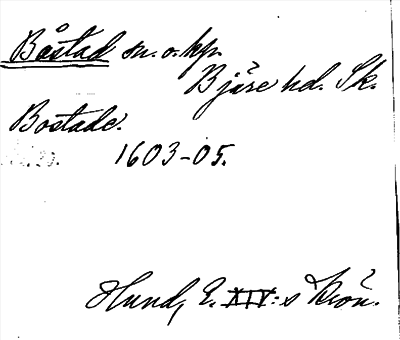 Båstad sn. o. kp.
Bjäre hd. Sk.
Bostade.
1603-05.
Hund, E. XIV:s Krön.